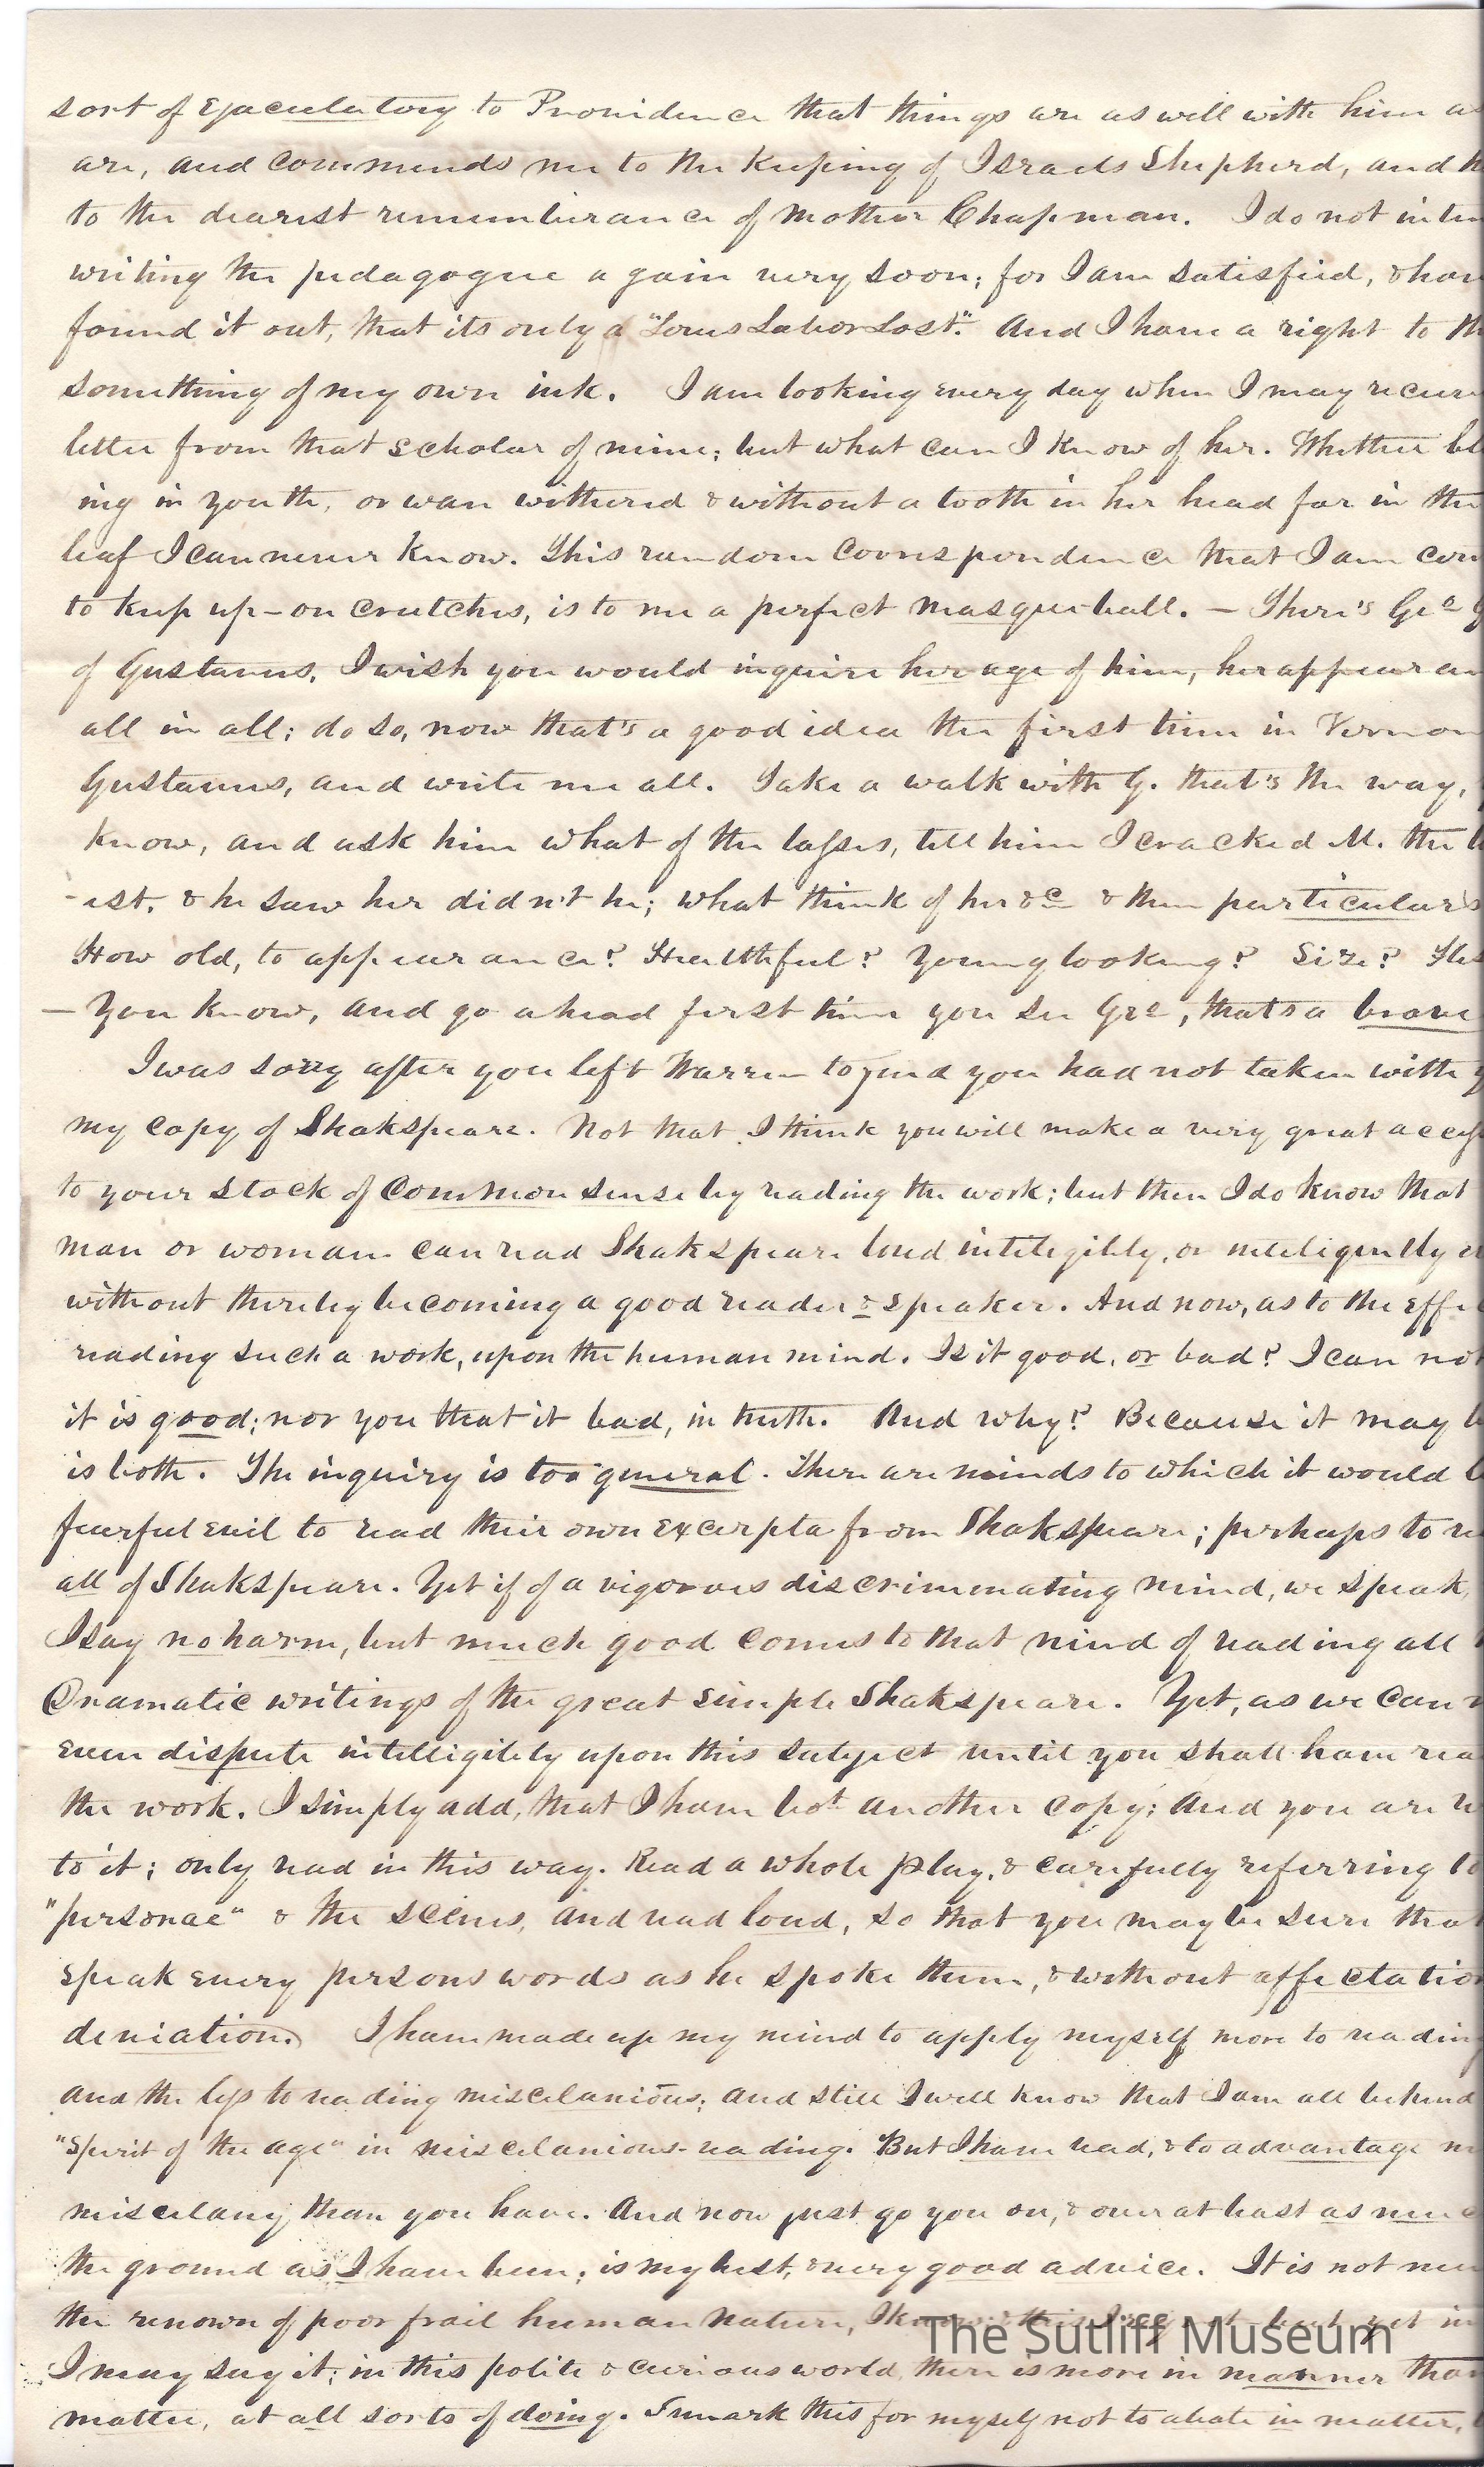 sort of ejaculatory to Providence that things are as well with him as
are, and commends me to the keeping of Israels Shepherd, and
to the dearest rememberance of Mother Chapman. I do not inten
writing the pedagogue again very soon; for I am satisfied, & have
found it out, that its only a "Loves Labor Lost". And I have a right to th
something of my own ink. I am looking every day when I may receive
letter from that scholar of mine; but what can I know of her. Whether bl
ing in youth, or wan withered & without a tooth in her head far in the
leaf I can never know. This random correspondence that I am con
to keep up - on crutches, is to me a perfect masque-ball. - There's Geo G
of Gustavus, I wish you would inquire her age of him, her appearan
all in all; do so, now that's a good idea the first time in Vernon
Gustavus, and write me all. Take a walk with G. that's the way,
know, and ask him what of the lasses, tell him I cracked M. the b
-est, & he saw her didn't he; what think of her &c & then particulars
How old, to appearance? Healthful? Young looking? Size? Thes
- You know, and go ahead first time you see Geo, that's a brave
I was sorry after you left Warren to find you had not taken with y
my copy of Shakspeare. Not that I think you will make a very great access
to your stock of common sense by reading the work; but then I do know that
man or woman can read Shakspeare loud inteligibly, or inteligently
without thereby becoming a good reader & speaker. And now, as to the effe
reading such a work, upon the human mind. Is it good, or bad? I can not
it is good; nor you that it bad, in truth. And why? Because it may b
is both. The inquiry is too general. There are minds to which it would b
fearful evil to read their own excerpta from Shakspeare; perhaps to re
all of Shakspeare. Yet if of a vigorous discriminating mind, we speak,
I say no harm, but much good comes to that mind of reading all
Dramatic writings of the great simple Shakspeare. Yet, as we can n
even dispute intelligibly upon this subject until you shall have rea
the work. I simply add, that I have bot another copy; and you are w
to it; only read in this way. Read a whole play, & carefully referring to
"personae" & the scenes, and read loud, so that you may be sure that
speak every persons words as he spoke them, & without affectation
deviation. I have made up my mind to apply myself more to reading
and the less to reading miscelanious; and still I well know that I am all behind
"Spirit of the age" in miscelanious-reading. But I have read, & to advantage m
miscelany than you have. And now just go you on, & over at least as muc
the ground as I have been; is my best, & very good advice. It is not muc
the renown of poor frail human nature, I know
The Sutliff Museum
I may say it; in this polite & curious world, there is more in manner than
matter, at all sorts of doing. I remark this for myself not to abate in matter,